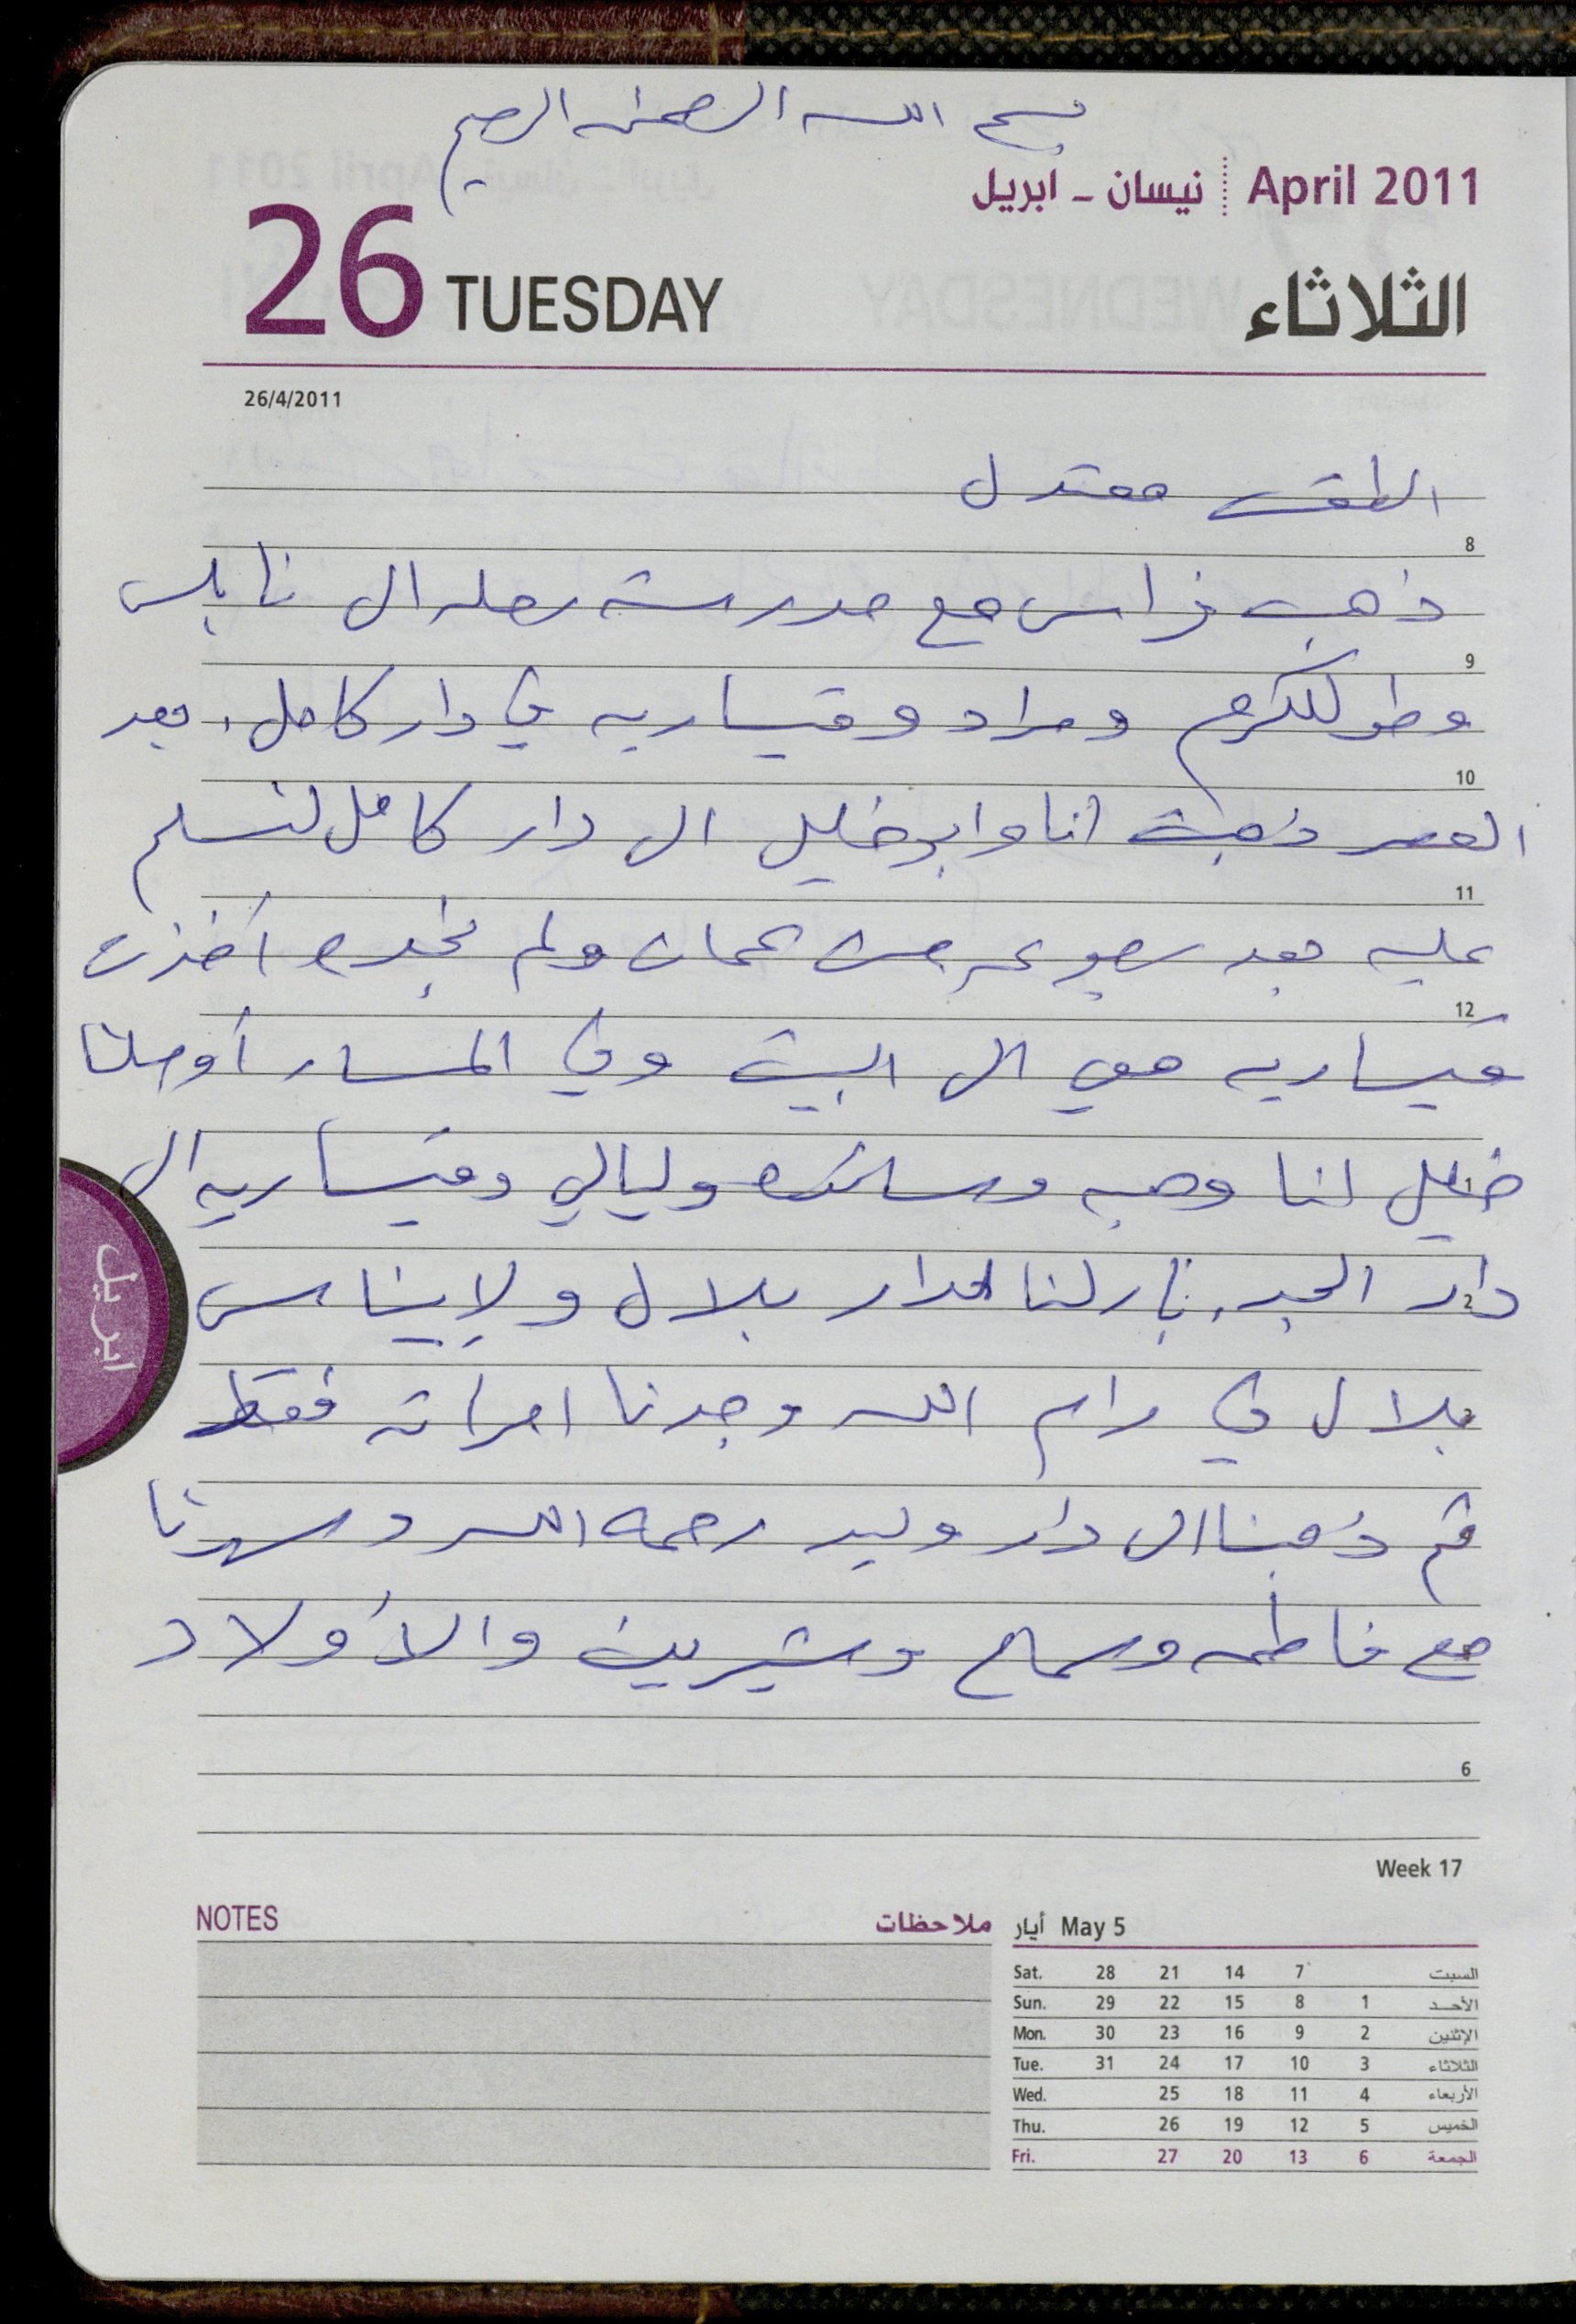 بسم الله الرحمن الرحيم
نيسان - ابريل April 2011
26 TUESDAY الثلاثاء
26/4/2011
الطقس معتدل
8
ذهب فراس مع مدرسته رحله الى نابلس
9
وطولكرم ومراد وقيساريه في دار كامل، بعد
10
العصر ذهبت انا وابو خليل الى دار كامل لنسلم
11
عليه بعد رجوعه من عمان ولم نجده أخذت
12
قيساريه معي الى البيت وفي المساء أوصلنا
1
خليل لنا وهبه وساندره وليالي وقيساريه الى
2
دار الجد، نارلنا لدار بلال ولايناس
بلال في رام الله وجدنا امراته فقط
ثم ذهبنا الى دار وليد رحمه الله وسهرنا
مع فاطمه وسماح وشيرين والأولاد
6
ابريل
Week 17
NOTES ملاحظات
أيار May 5
Sat. 28 21 14 7 السبت
Sun. 29 22 15 8 1 الأحد
Mon. 30 23 16 9 2 الإثنين
Tue. 31 24 17 10 3 الثلاثاء
Wed. 25 18 11 4 الأربعاء
Thu. 26 19 12 5 الخميس
Fri. 27 20 13 6 الجمعة